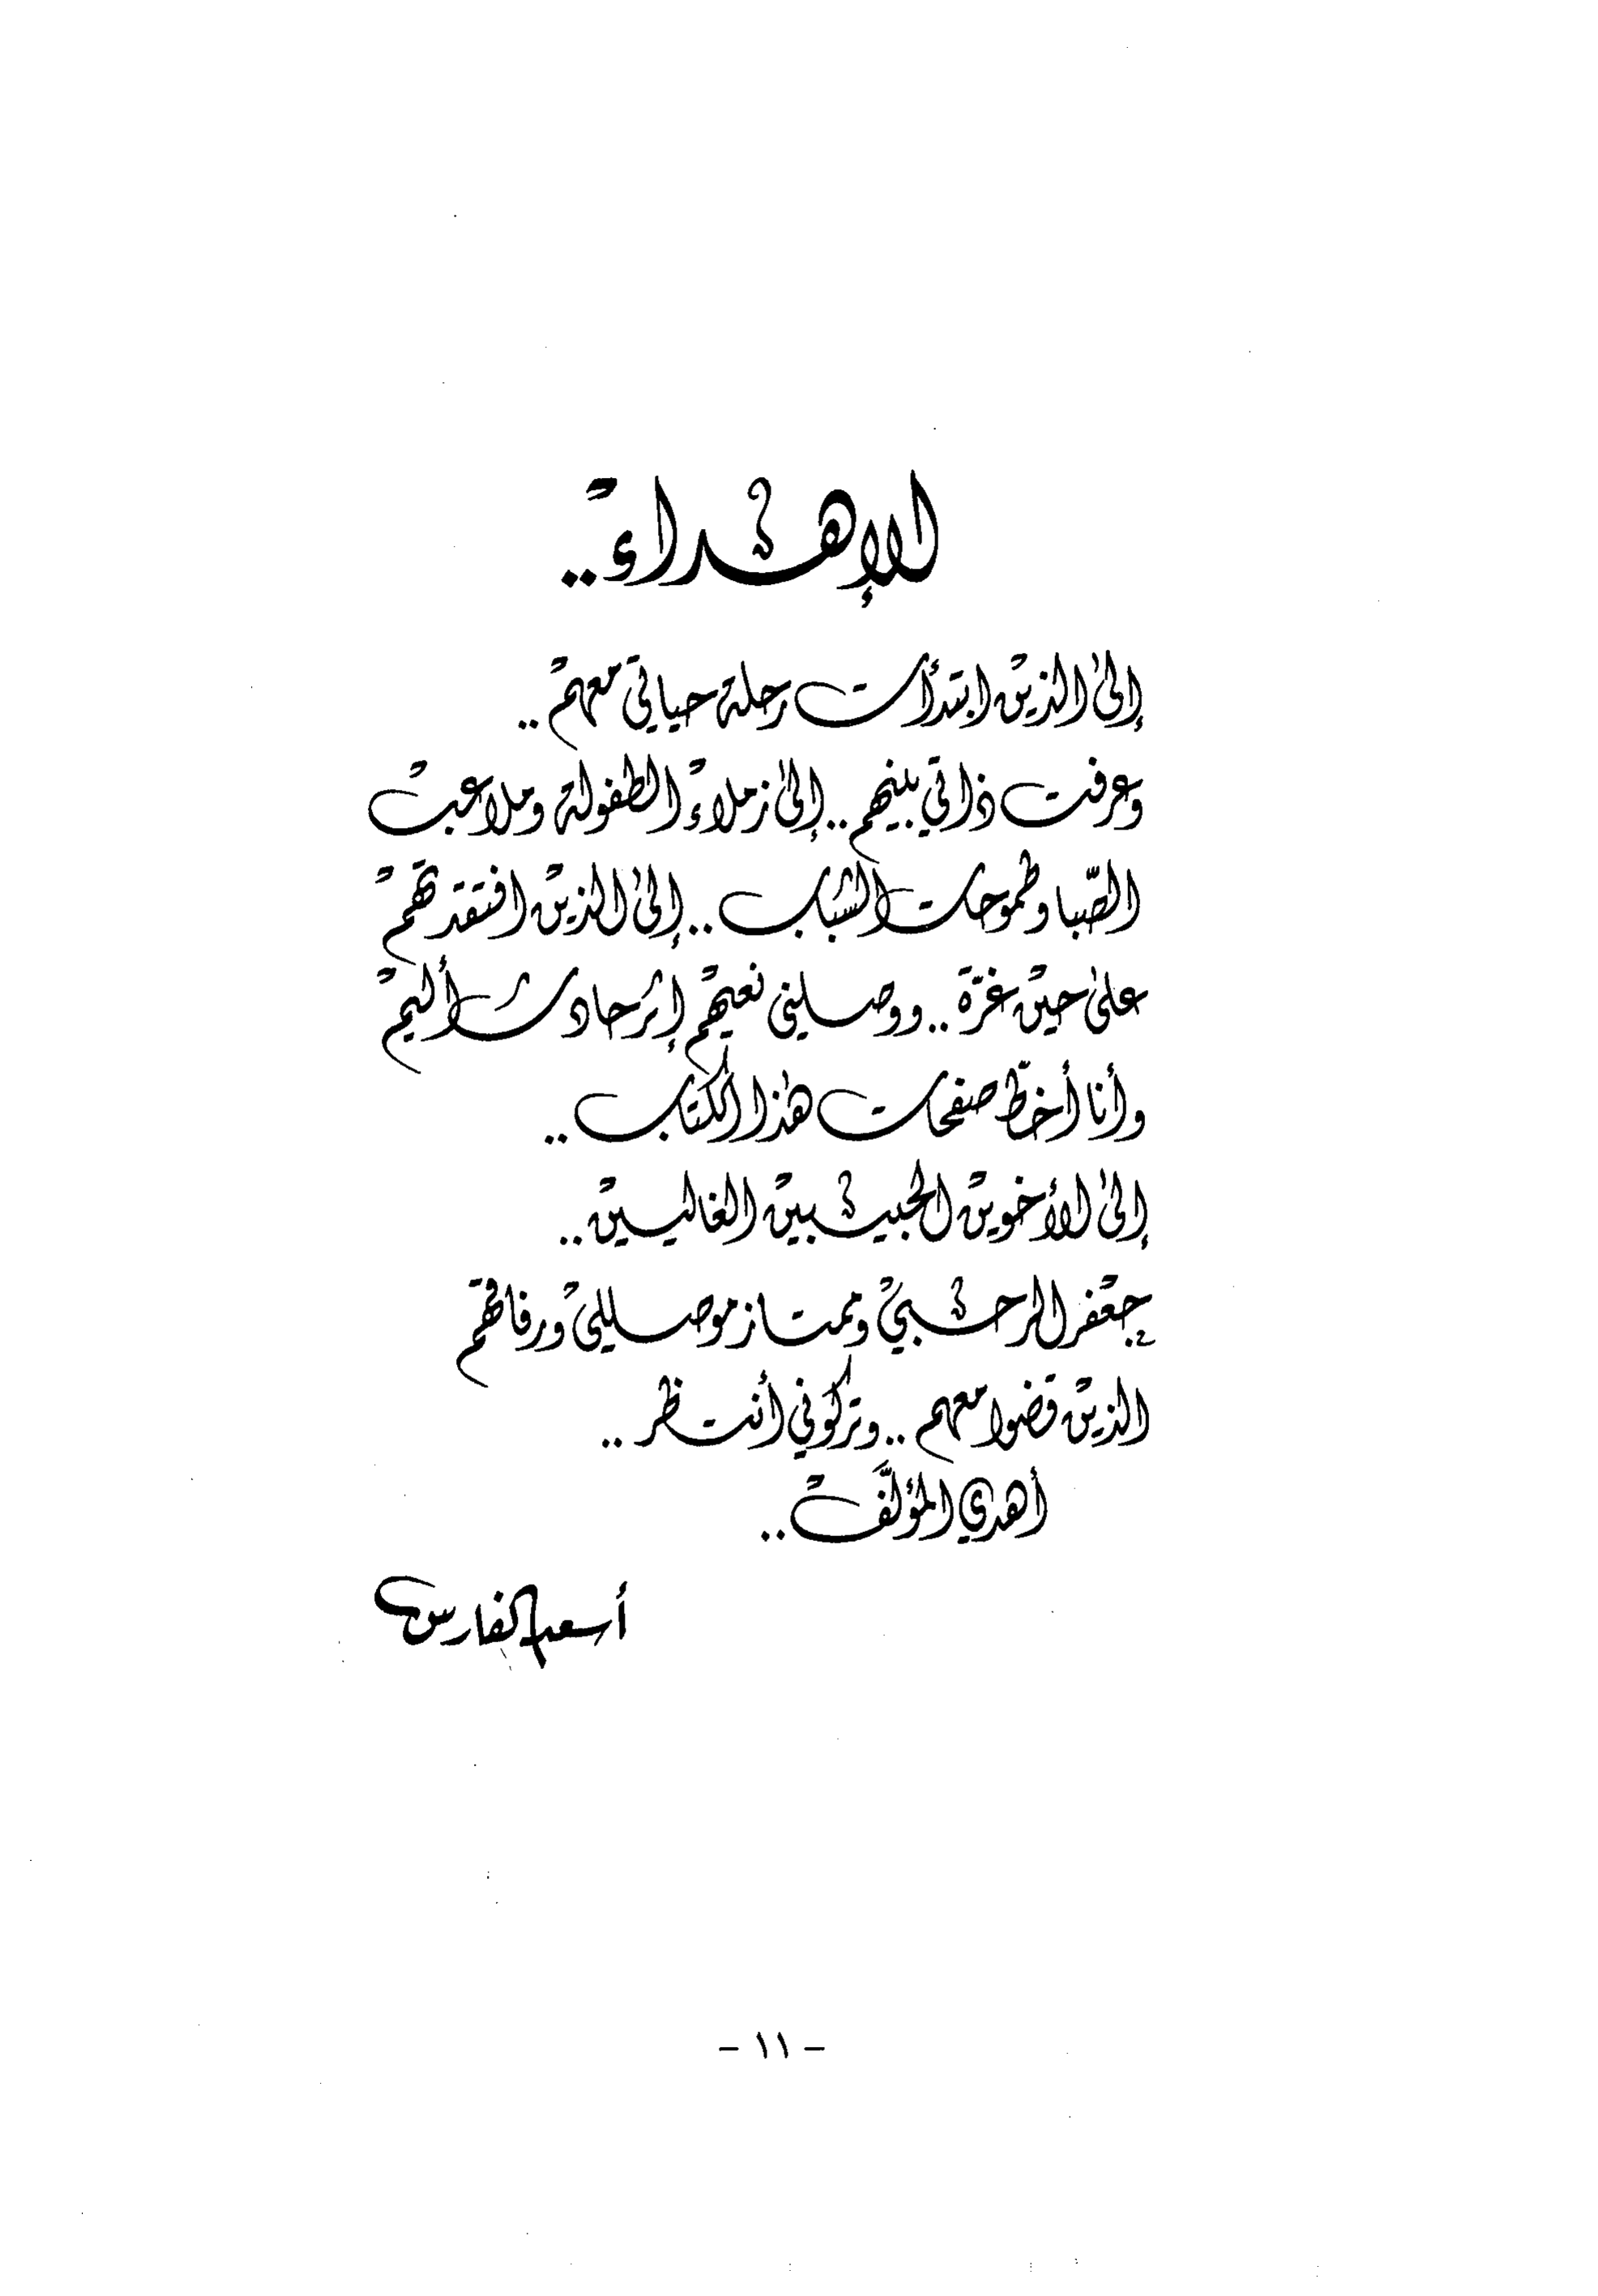 الإهداء..
إلى الذين ابتدأت رحلة حياتي معهم..
وعرفت ذاتي بينهم.. إلى زملاء الطفولة وملاعب
الصّبا وطموحات الشباب.. إلى الذين افتقدتهم
على حين غرّة.. ووصلني نعيهم إثر حادث أليم
وأنا أخطّ صفحات هذا الكتاب..
إلى الأخوين الحبيبين الغاليين..
جعفر الرحبي وممتاز موصللي ورفاقهم
الذين قضوا معهم.. وتركوني أنتظر..
أهدي المؤلَّف..
أسعد الفارس
- ١١ -